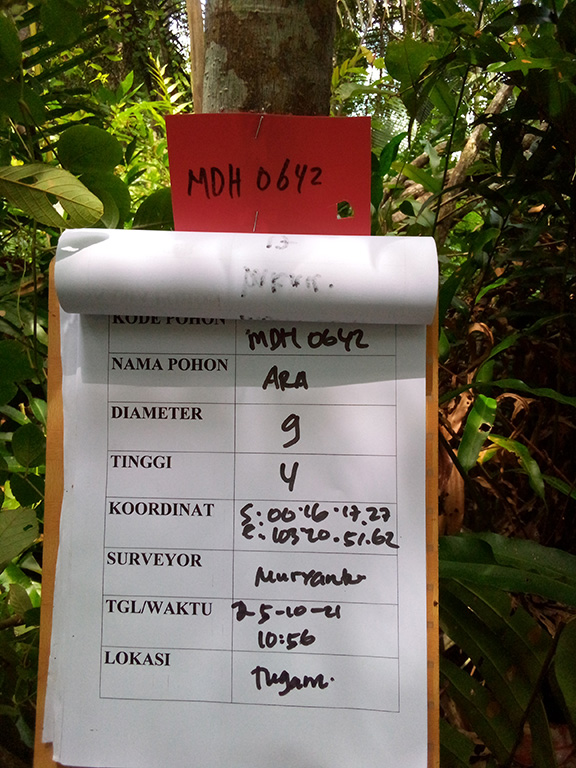 MDH 0642
13
KODE POHON MDH 0642
NAMA POHON ARA
DIAMETER 9
TINGGI 4
KOORDINAT S: 00.16.17.27
E: 103.20.51.62
SURVEYOR
TGL/WAKTU 25-10-21
10:56
LOKASI